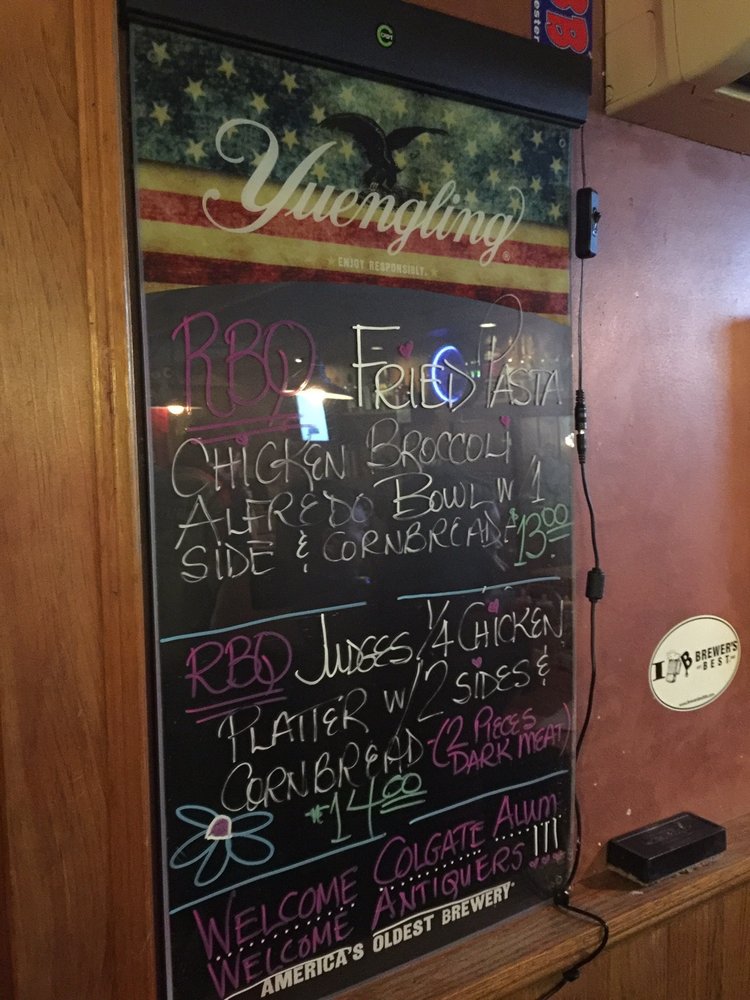 BB
ester
Yuengling®
ENJOY RESPONSIBLY.
RBQ FRIED PASTA
CHICKEN BROCCOLI
ALFREDO BOWL W 1
SIDE & CORNBREAD - $13.00
RBQ JUDGES 1/4 CHICKEN
PLATTER W/ 2 SIDES &
CORNBREAD - (2 PIECES
DARK MEAT)
$14.00
WELCOME COLGATE ALUM
WELCOME ANTIQUERS!!!
AMERICA'S OLDEST BREWERY®
I BREWER'S
BEST